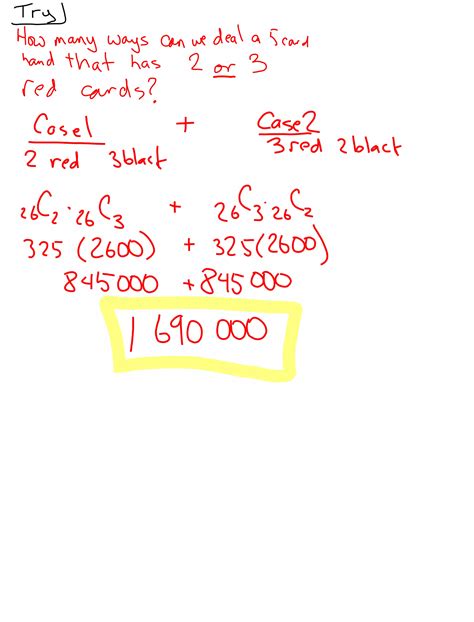 Try
How many ways can we deal a 5 card
hand that has 2 or 3
red cards?
Case1 + Case2
2 red 3black 3red 2black
₂₆C₂ · ₂₆C₃ + ₂₆C₃ · ₂₆C₂
325 (2600) + 325(2600)
845000 + 845000
1 690 000